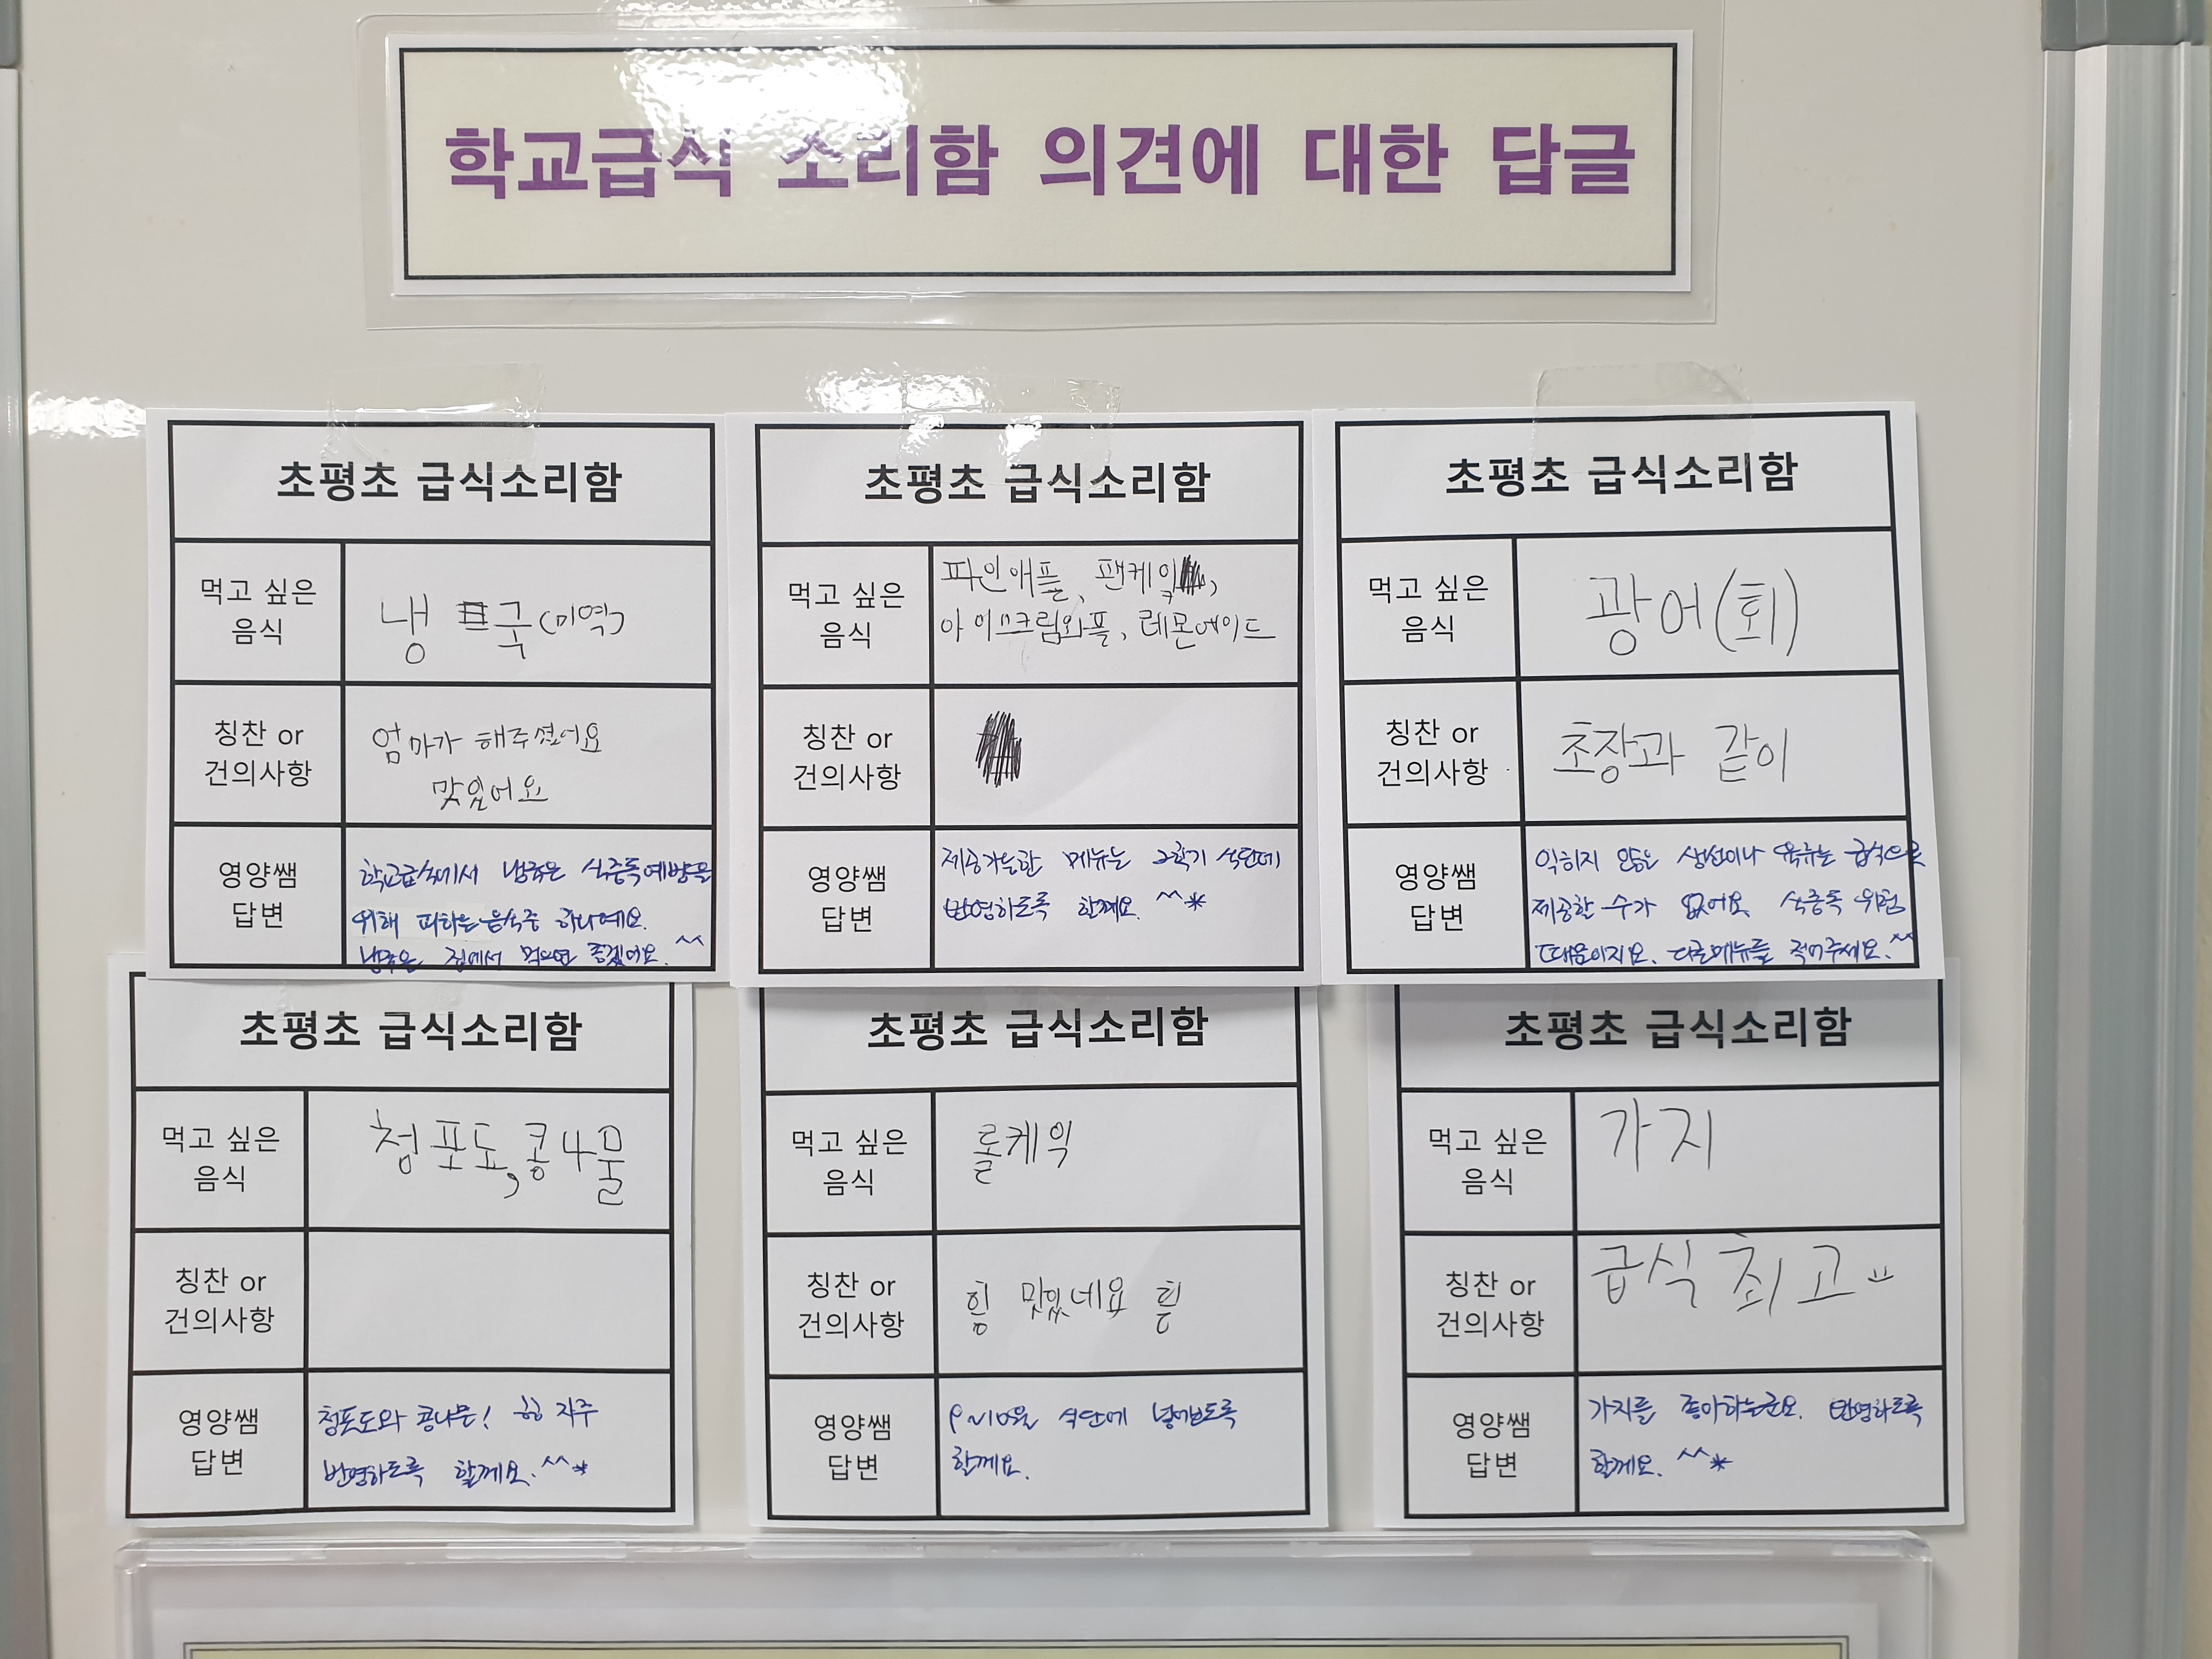 학교급식 소리함 의견에 대한 답글
초평초 급식소리함
먹고 싶은
음식
냉 국(미역)
칭찬 or
건의사항
엄마가 해주셨어요
맛있어요
영양쌤
답변
학교급식에서 냉국은 식중독예방을
위해 피하는 음식중 하나예요.
냉국은 집에서 먹으면 좋겠어요. ^^
초평초 급식소리함
먹고 싶은
음식
파인애플, 팬케익,
아이스크림와플, 레몬에이드
칭찬 or
건의사항
영양쌤
답변
제공가능한 메뉴는 2학기 식단에
반영하도록 할께요. ^^*
초평초 급식소리함
먹고 싶은
음식
광어(회)
칭찬 or
건의사항
초장과 같이
영양쌤
답변
익히지 않은 생선이나 육류는 급식으로
제공할 수가 없어요 식중독 위험
때문이지요. 다른메뉴를 적어주세요. ^^
초평초 급식소리함
먹고 싶은
음식
청포도, 콩나물
칭찬 or
건의사항
영양쌤
답변
청포도와 콩나물! 자주
반영하도록 할께요. ^^*
초평초 급식소리함
먹고 싶은
음식
롤케익
칭찬 or
건의사항
힘 맛있네요
영양쌤
답변
9~10월 식단에 넣어보도록
할께요.
초평초 급식소리함
먹고 싶은
음식
가지
칭찬 or
건의사항
급식 최고
영양쌤
답변
가지를 좋아하는군요. 반영하도록
할께요. ^^*